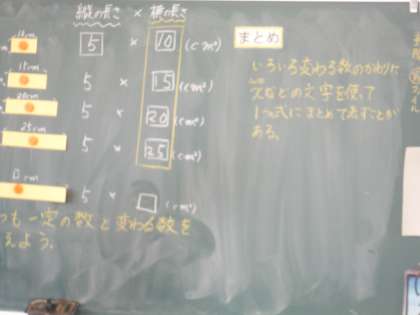 縦の長さ × 横の長さ
10cm 5 × 10 (cm²)
15cm 5 × 15 (cm²)
20cm 5 × 20 (cm²)
25cm 5 × 25 (cm²)
□cm 5 × □ (cm²)
つも一定の数と変わる数を
えよう。
まとめ
いろいろ変わる数のかわりに
xなどの文字を使って
1つの式にまとめて表すことが
ある。